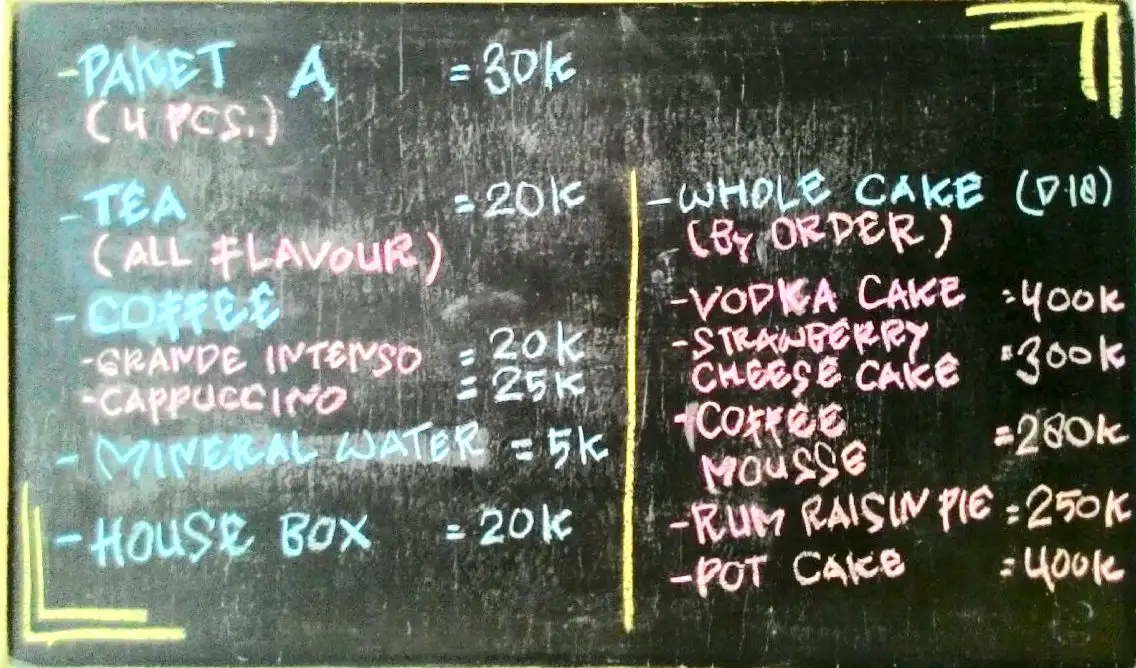 - PAKET A = 30k
(4 PCS.)
- TEA = 20k
(ALL FLAVOUR)
- COFFEE
- GRANDE INTENSO = 20k
- CAPPUCCINO = 25k
- MINERAL WATER = 5k
- HOUSE BOX = 20k
- WHOLE CAKE (D18)
(By ORDER)
- VODKA CAKE = 400k
- STRAWBERRY
CHEESE CAKE = 300k
- COFFEE
MOUSSE = 280k
- RUM RAISIN PIE = 250k
- POT CAKE = 400k